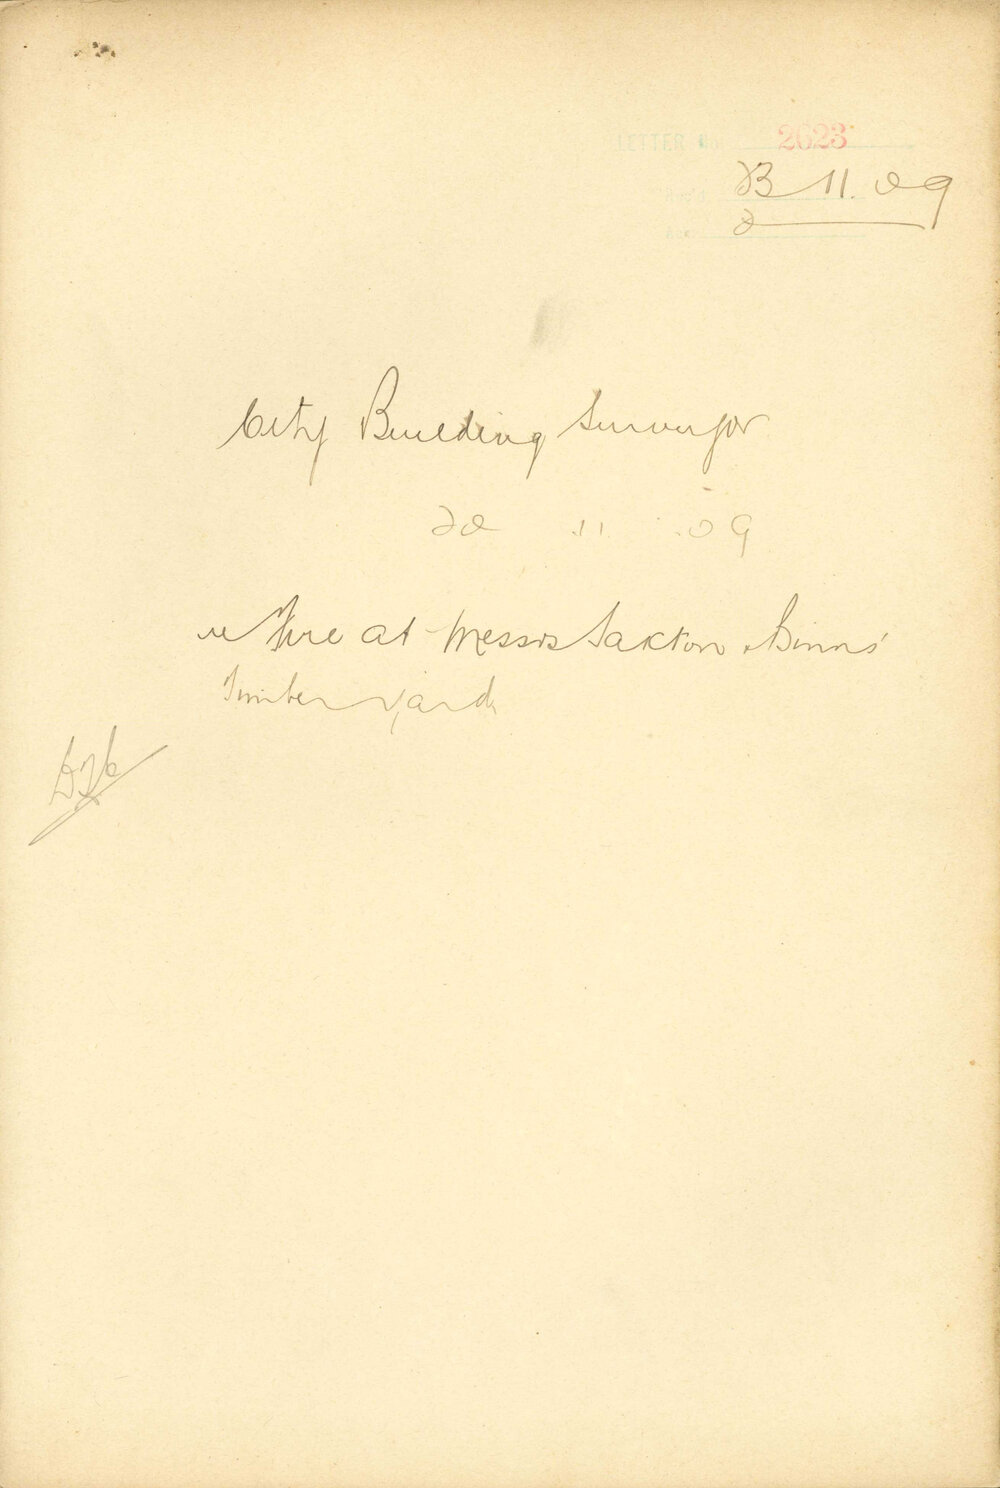 LETTER No 2623
23 11. 09
2
City Building Surveyor
20 11 09
re Fire at Messrs Saxton & Binns'
Timber Yard